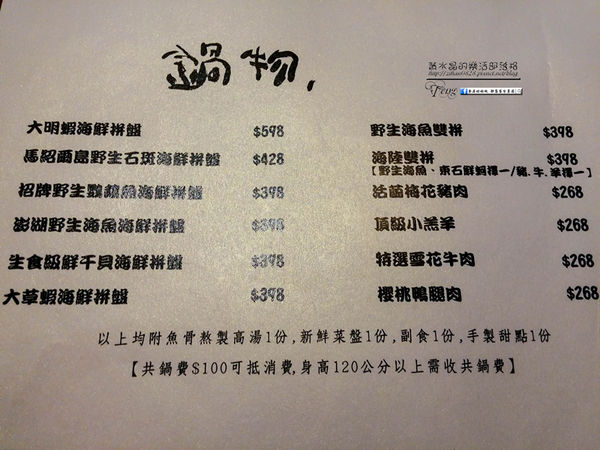 鍋物.
蔬水晶的樂活部落格
Teng
大明蝦海鮮拼盤 $598
馬紹爾島野生石斑海鮮拼盤 $428
招牌野生鸚鵡魚海鮮拼盤 $398
澎湖野生海魚海鮮拼盤 $398
生食級鮮干貝海鮮拼盤 $398
大草蝦海鮮拼盤 $398
野生海魚雙拼 $398
海陸雙拼 $398
【野生海魚、東石鮮蚵擇一/豬.牛.羊擇一】
活菌梅花豬肉 $268
頂級小羔羊 $268
特選雪花牛肉 $268
櫻桃鴨腿肉 $268
以上均附魚骨熬製高湯1份,新鮮菜盤1份,副食1份,手製甜點1份
【共鍋費$100可抵消費,身高120公分以上需收共鍋費】